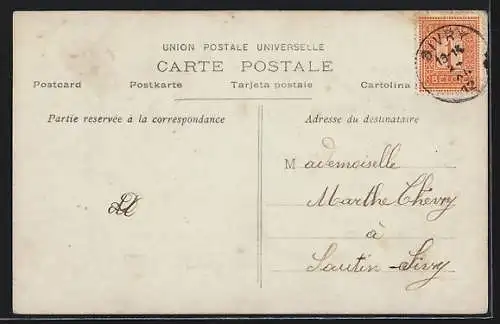 UNION POSTALE UNIVERSELLE
CARTE POSTALE
Postcard Postkarte Tarjeta postale Cartolina
SIVRY
13-14
12
Partie reservée à la correspondance
Adresse du destinataire
Mademoiselle
Marthe Thévry
à
Sautin-Sivry